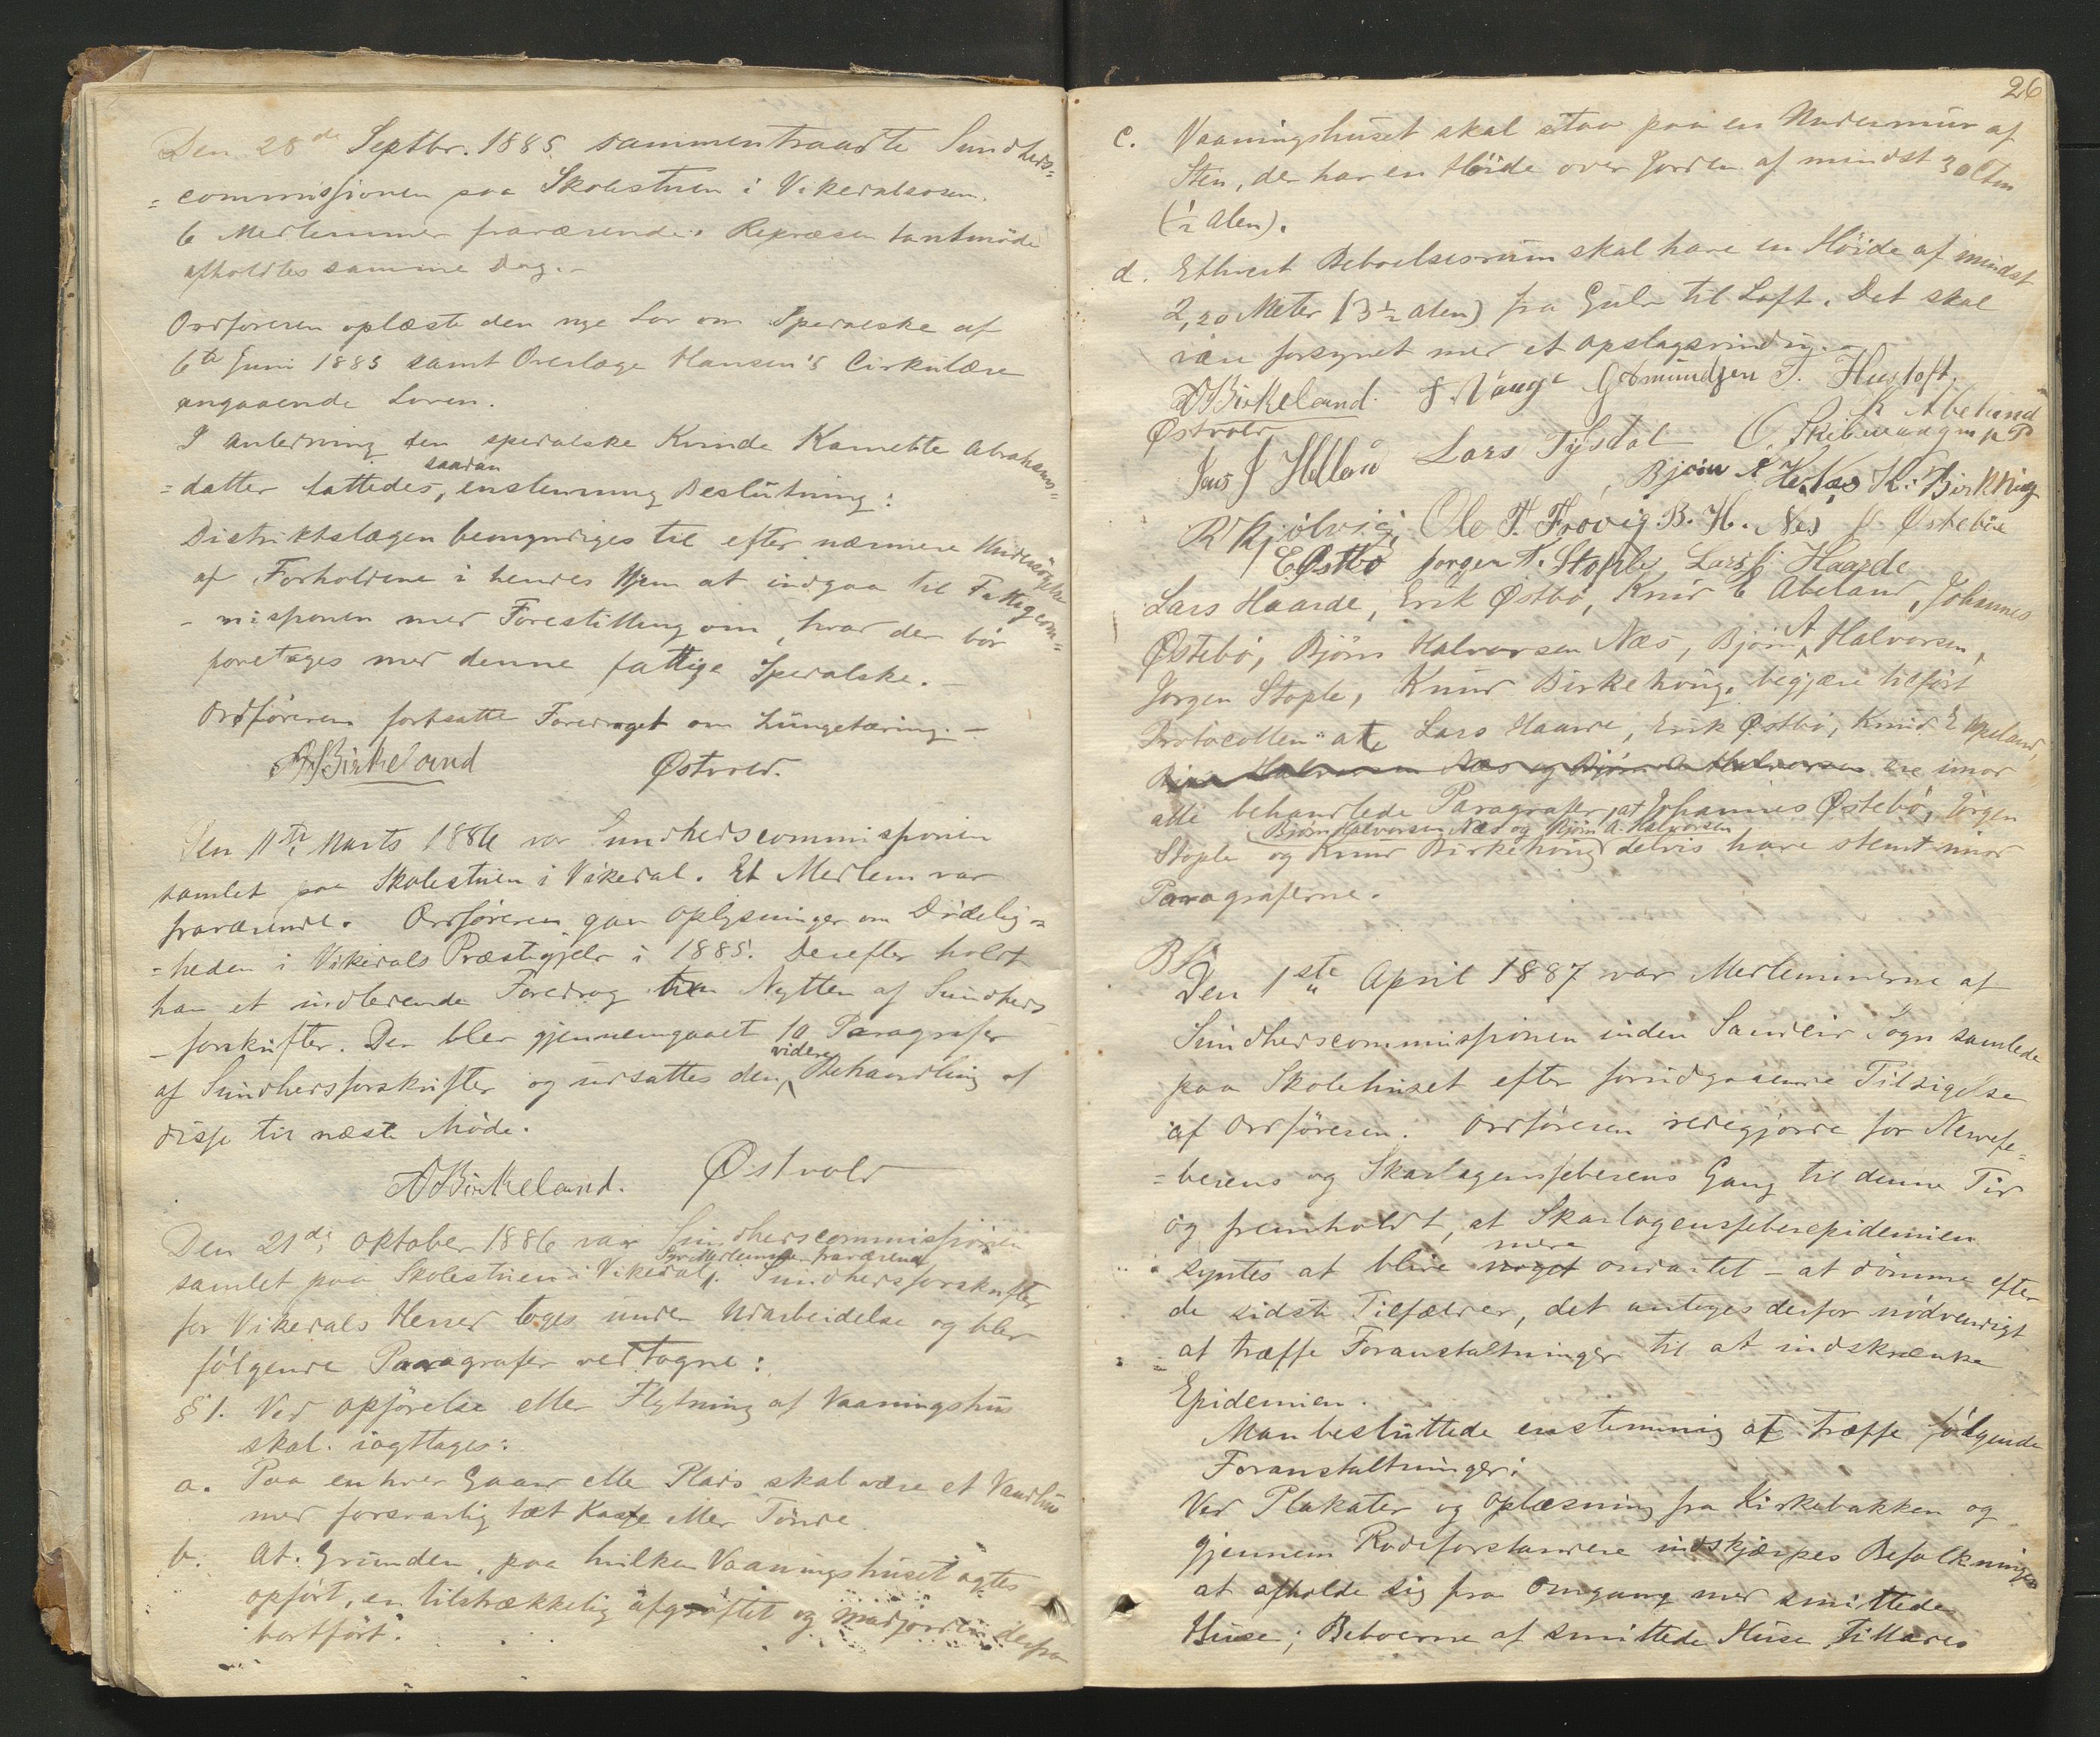 Den 28de Septbr. 1885 sammentraadte Sundheds-
=commissionen paa Skolestuen i Vikedalsosen.
6 Medlemmer fraværende. Repræsentantmöde
afholdtes samme Dag.-
Ordföreren oplæste den nye Lov om Spedalske af
6te Juni 1885 samt Overlæge Hansen's Cirkulære
angaaende Loven.
I Anledning den spedalske Kvinde Kamelle Abrahams=
saadan
=datter fattedes, enstemmig Beslutning:
Distriktslægen bemyndiges til efter nærmere Undersögelse
af Forholdene i hendes Hjem at indgaa til Fattigcom=
-missionen med Forestilling om, hvad der bör
foretages med denne fattige Spedalske.-
Ordföreren fortsatte Foredraget om Lungetæring.-
A Birkeland Østvold.
Den 11te Marts 1886 var Sundhedscommissionen
samlet paa Skolestuen i Vikedal. Et Medlem var
fraværende. Ordföreren gav Oplysninger om Dödelig=
=heden i Vikedals Præstegjeld i 1885. Derefter holdt
han et indledende Foredrag om Nytten af Sundheds
-forskrifter. Der blev gjennemgaaet 10 Paragrafer
videre
af Sundhedsforskrifter og udsattes den Behandling af
disse til næste Möde.
A Birkeland. Østvold
Den 21de Oktober 1886 var Sundhedscommissionen
Syv Medlemmer fraværende
samlet paa Skolestuen i Vikedal. Sundhedsforskrifter
for Vikedals Herred toges under Udarbeidelse og blev
fölgende Paragrafer vedtagne:
§ 1. Ved Opförelse eller Flytning af Vaaningshus
skal iagttages:
a. Paa enhver Gaard eller Plads skal være et Vandhus
med forsvarlig tæt Kasse eller Tönde
b. At Grunden, paa hvilken Vaaningshuset agtes
opfört, er tilstrækkelig afgröftet og Madjorden derfra
bortfört.
26
c. Vaaningshuset skal staa paa en Undermur af
Sten, der har en Höide over Jorden af mindst 30 Ctm
(½ Alen).
d. Ethvert Beboelsesrum skal have en Höide af mindst
2,20 Meter (3½ Alen) fra Gulv til Loft. Det skal
være forsynet med et Opslagsvindu.-
A Birkeland. Vaage Gudmundsen T. Hustoft.
Østvold K Abeland
Jens J Helland Lars Tysdal O. Skibenæs
Bjørn A H. Næs K. Birkhoug
R Kjölvig, Ole T. Frovig B. H. Næs J. Østebøe
E Østbö Jorgen T. Stople Lars J Haarde
Lars Haarde, Erik Østbö, Knud E Abeland, Johannes
A
Østebö, Björn Halvorsen Næs, Björn Halvorsen,
Jorgen Stople, Knud Birkehoug begjære tilfört
Protocollen at Lars Haarde, Erik Østbö, Knud E Apeland,
Björn Halvorsen Næs og Björn A Halvorsen ere imod
alle behandlede Paragrafer, at Johannes Østebö, Jörgen
Björn Halvorsen Næs og Björn A. Halvorsen
Stople og Knud Birkehoug delvis have stemt imod
Paragraferne.
Den 1ste April 1887 var Medlemmerne af
Sundhedscommissionen inden Sandeid Sogn samlede
paa Skolehuset efter forudgaaende Tilsigelse
af Ordföreren. Ordföreren redegjorde for Nervefe=
=berens og Skarlagensfeberens Gang til denne Tid
og fremholdt, at Skarlagensfeberepidemien
mere
syntes at blive noget ondartet - at dömme efter
de sidste Tilfælder, det antoges derfor nödvendigt
at træffe Foranstaltninger til at indskrænke
Epidemien.
Man besluttede enstemmig at træffe fölgende
Foranstaltninger:
Ved Plakater og Oplæsning fra Kirkebakken og
gjennem Rodeforstandere indskjærpes Befolkningen
at afholde sig fra Omgang med smittede
Huse; Beboerne af smittede Huse Tillades